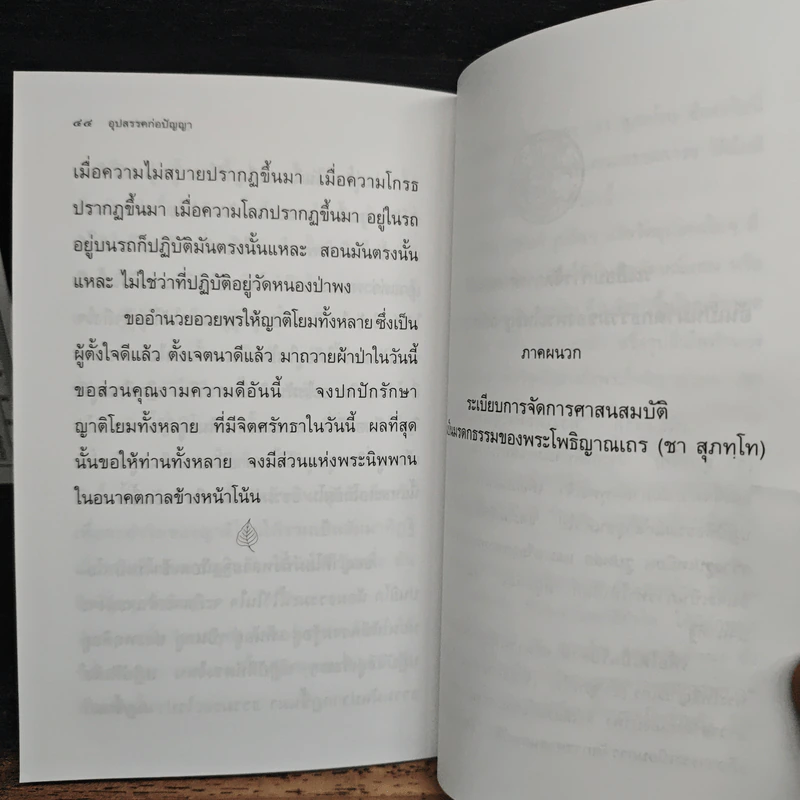 ๔๔ อุปสรรคก่อปัญญา
เมื่อความไม่สบายปรากฏขึ้นมา เมื่อความโกรธ
ปรากฏขึ้นมา เมื่อความโลภปรากฏขึ้นมา อยู่ในรถ
อยู่บนรถก็ปฏิบัติมันตรงนั้นแหละ สอนมันตรงนั้น
แหละ ไม่ใช่ว่าที่ปฏิบัติอยู่วัดหนองป่าพง
ขออำนวยอวยพรให้ญาติโยมทั้งหลาย ซึ่งเป็น
ผู้ตั้งใจดีแล้ว ตั้งเจตนาดีแล้ว มาถวายผ้าป่าในวันนี้
ขอส่วนคุณงามความดีอันนี้ จงปกปักรักษา
ญาติโยมทั้งหลาย ที่มีจิตศรัทธาในวันนี้ ผลที่สุด
นั้นขอให้ท่านทั้งหลาย จงมีส่วนแห่งพระนิพพาน
ในอนาคตกาลข้างหน้าโน้น
ภาคผนวก
ระเบียบการจัดการศาสนสมบัติ
เป็นมรดกธรรมของพระโพธิญาณเถร (ชา สุภทฺโท)